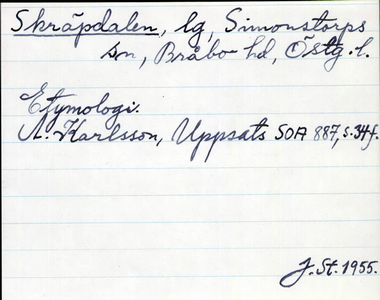 Skräpdalen, lg, Simonstorps
sn, Bråbo hd, Östg. l.
Etymologi.
A. Karlsson, Uppsats SOA 887, s. 34 f.
J. St. 1955.